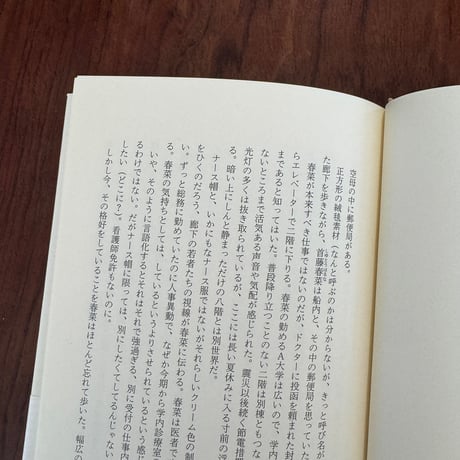 空母の中に郵便局がある。
正方形の絨毯素材（なんと呼ぶのかは分からないが、きっと呼び名が
た廊下を歩きながら、首藤春菜は船内と、その中の郵便局を思っていた
春菜が本来すべき仕事ではないのだが、ドクターに投函を頼まれた封
らエレベーターで二階に下りる。春菜の勤めるＡ大学は広いので、学内
まであるらと知ってはいた。普段降り立つことのない二階は別棟ともつな
ないところまで活気ある声音や気配が感じられた。震災以後続く節電措
光灯の多くは抜き取られているが、ここには長い夏休みに入る寸前の浮
る。暗い上にしんと静まっただけの八階とは別世界だ。
ナース帽と、いかにもなナース服ではないがそれらしいクリーム色の制
をひくのだろう、廊下の若者たちの視線が春菜に伝わる。春菜は医者で
い。ずっと総務に勤めていたのに人事異動で、なぜか今期から学内診療室
る。春菜の気持ちとしては、しているというよりさせられているという感
いや、そのように言語化するとそれはそれで強過ぎる。別に受付の仕事内
るわけではない。だがナース帽に限っては、別にしたくてしてるんじゃない
したい（どこに？）。看護師免許もないのに。
しかし今、その格好をしていることを春菜はほとんど忘れて歩いた。幅広の